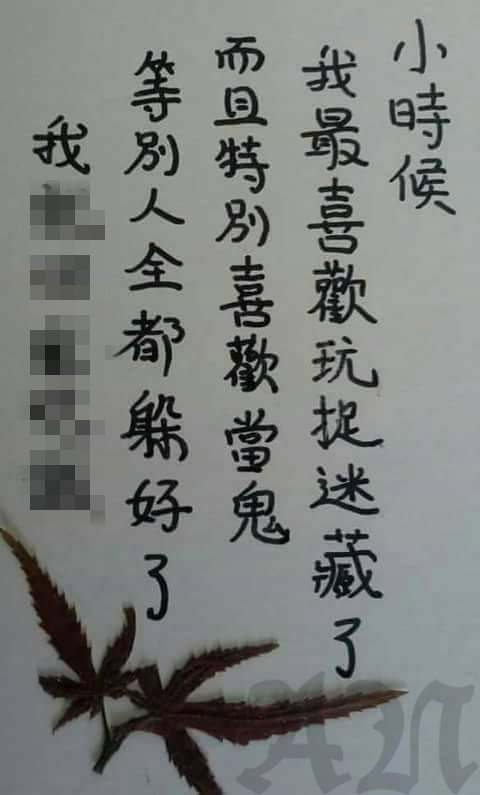 小時候
我最喜歡玩捉迷藏了
而且特別喜歡當鬼
等別人全都躲好了
我
AN